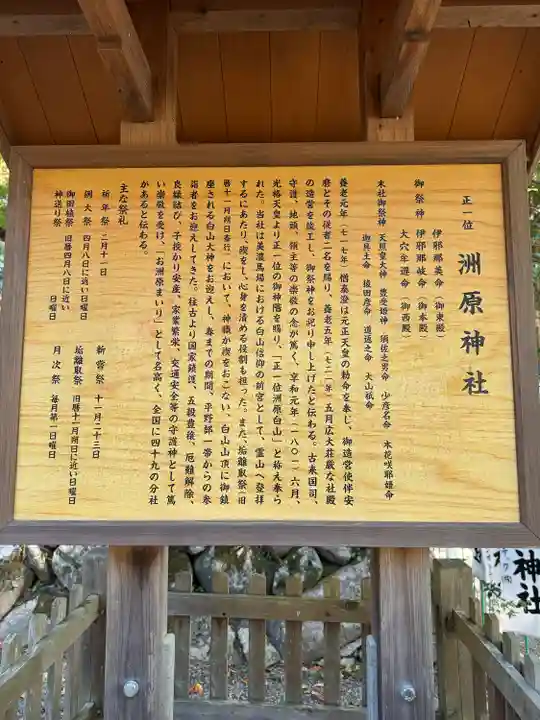 正一位 洲原神社
御祭神 伊邪那美命(御東殿)
伊邪那岐命(御本殿)
大穴牟遅命(御西殿)
末社御祭神 天照皇大神 豊受姫神 須佐之男命 少彦名命 木花咲耶姫命
迦具土命 猿田彦命 道返之命 大山祇命
養老元年(七一七年)僧泰澄は元正天皇の勅命を奉し、御造営使伴安
麿とその従者二名を賜り、養老五年(七二一年)五月広大荘厳な社殿
の造営を竣工し、御祭神をお祀り申し上げたと伝わる。古来国司、
守護、地頭、領主等の崇敬の念が篤く、享和元年(一八〇一)六月、
光格天皇より正一位の御神階を賜り、「正一位洲原白山」と称え奉ら
れた。当社は美濃馬場における白山信仰の前宮として、霊山へ登拝
するにあたり、禊をし、心身を清める役割も担った。また、垢離取祭(旧
暦十一月朔日斎行)において、神職が禊をおこない、白山山頂に御鎮
座される白山大神をお迎えし、春までの期間、平野部一帯からの参
詣者をお迎えしてきた。往古より国家鎮護、五穀豊穣、厄難解除、
良縁結び、子授かり安産、家業繁栄、交通安全等の守護神として篤
い崇敬を受け、「お洲原まいり」として名高く、全国に四十九の分社
があると伝わる。
主な祭礼
祈年祭 二月十一日
例大祭 四月八日に近い日曜日
御田植祭 旧暦四月八日に近い
神送り祭 日曜日
新嘗祭 十一月二十三日
垢離取祭 旧暦十一月朔日に近い日曜日
月次祭 毎月第一日曜日
神社